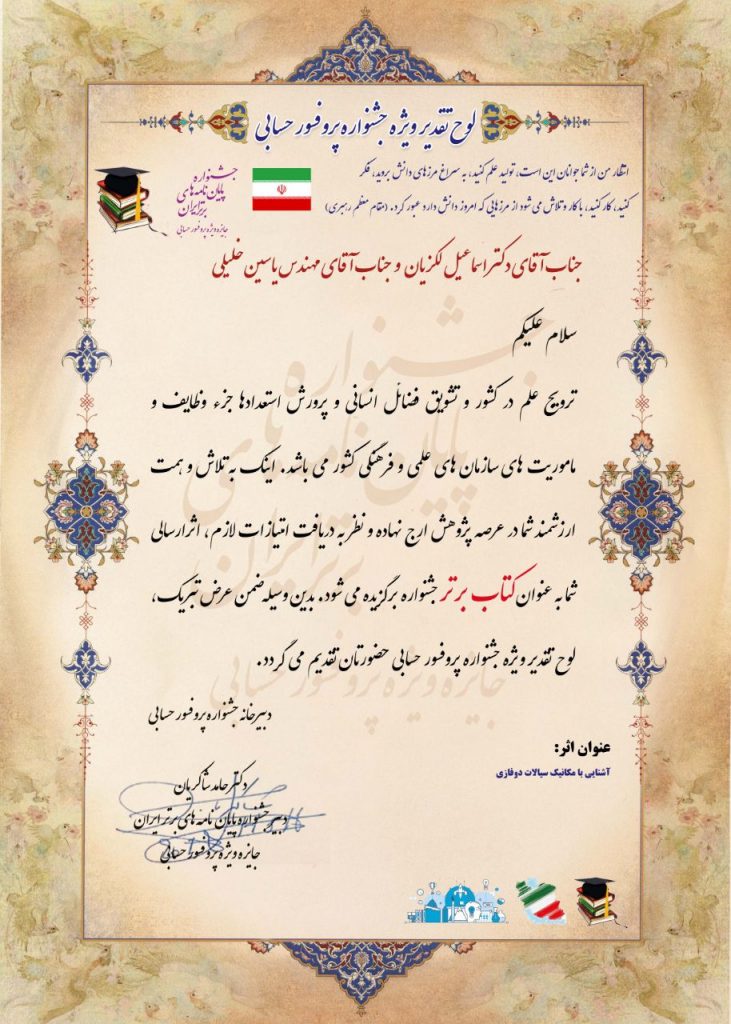 لوح تقدیر ویژه جشنواره پروفسور حسابی
انتظار من از شما جوانان این است، تولید علم کنید، به سراغ مرزهای دانش بروید، فکر
کنید، کار کنید، با کار و تلاش می شود از مرزهایی که امروز دانش دارد عبور کرد. (مقام معظم رهبری)
جشنواره
پایان نامه های
برتر ایران
جایزه ویژه پروفسور حسابی
جناب آقای دکتر اسماعیل لکزیان و جناب آقای مهندس یاسین خلیلی
سلام علیکم
ترویج علم در کشور و تشویق فضائل انسانی و پرورش استعدادها جزء وظایف و
ماموریت های سازمان های علمی و فرهنگی کشور می باشد. اینک به تلاش و همت
ارزشمند شما در عرصه پژوهش ارج نهاده و نظر به دریافت امتیازات لازم، اثر ارسالی
شما به عنوان کتاب برتر جشنواره برگزیده می شود. بدین وسیله ضمن عرض تبریک،
لوح تقدیر ویژه جشنواره پروفسور حسابی حضورتان تقدیم می گردد.
دبیرخانه جشنواره پروفسور حسابی
عنوان اثر:
آشنایی با مکانیک سیالات دوفازی
دکتر حامد شاکریان
دبیر جشنواره پایان نامه های برتر ایران
جایزه ویژه پروفسور حسابی
جشنواره
پایان نامه های
برتر ایران
جایزه ویژه پروفسور حسابی